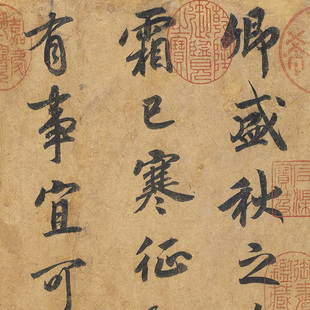 卿盛秋之
霜已寒征
有事宜可